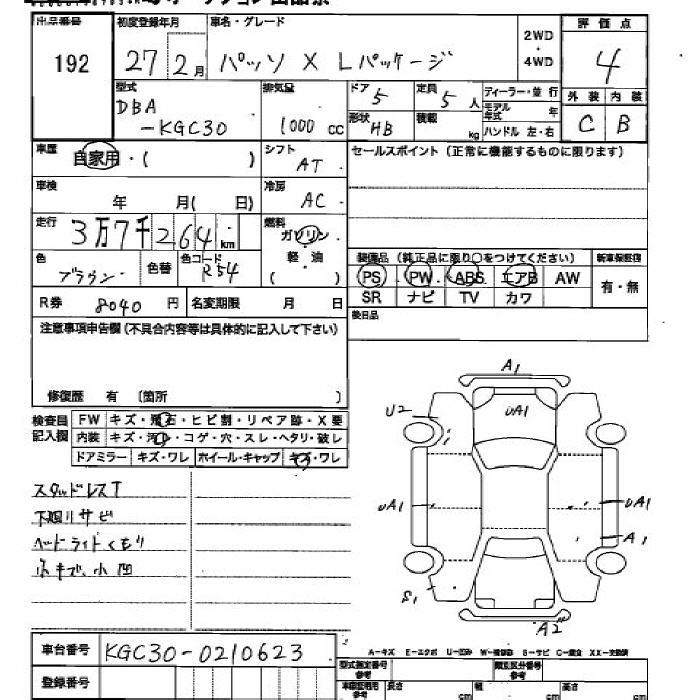 出品番号 初度登録年月 車名・グレード 2WD・4WD 評価点
192 27 2月 パッソ X Lパッケージ 4
型式 排気量 ドア 5 定員 5人 ディーラー・並行 外装 内装
DBA 1000cc 形状 HB 積載 kg モデル年式 年 C B
-KGC30 ハンドル 左・右
車歴 自家用・( ) シフト AT セールスポイント(正常に機能するものに限ります)
車検 年 月( 日) 冷房 AC
走行 3万7千264km 燃料 ガソリン・軽・油 ( )
色 ブラウン 色替 色コード R54
装備品(純正品に限り○をつけてください) 新車保証書
PS PW ABS エアB AW 有・無
SR ナビ TV カワ
R券 8040円 名変期限 月 日 後日品
注意事項申告欄(不具合内容等は具体的に記入して下さい)
修復歴 有 〔箇所 〕
検査員記入欄 FW キズ・飛石・ヒビ割・リペア跡・X要
内装 キズ・汚れ・コゲ・穴・スレ・ヘタリ・破レ
ドアミラー キズ・ワレ ホイール・キャップ キズ・ワレ
スタッドレスT
下廻りサビ
ヘッドライトくもり
小キズ、小凹
A1
U2 UA1
UA1 UA1
A1
S1 A2
車台番号 KGC30-0210623
登録番号
A-キズ E-エクボ U-凹み W-補修跡 S-サビ C-腐食 XX-交換済
型式指定番号 参考 類別区分番号 参考
長さ cm 幅 cm 高さ cm